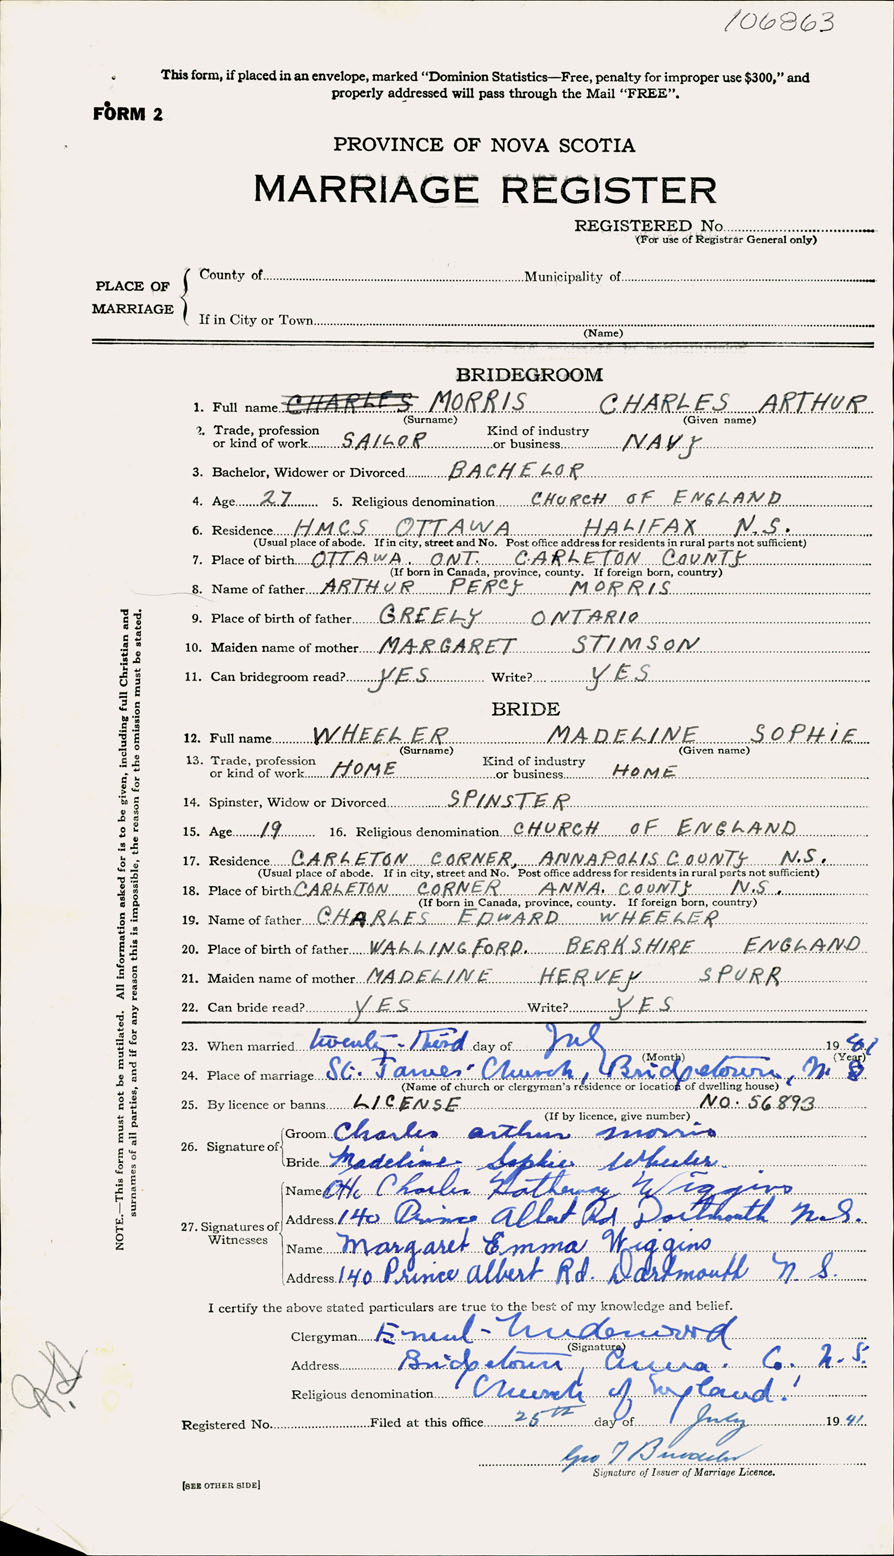 106863
This form, if placed in an envelope, marked "Dominion Statistics—Free, penalty for improper use $300," and
properly addressed will pass through the Mail "FREE".
FORM 2
PROVINCE OF NOVA SCOTIA
MARRIAGE REGISTER
REGISTERED No.
(For use of Registrar General only)
PLACE OF MARRIAGE
County of Municipality of
If in City or Town
(Name)
BRIDEGROOM
1. Full name CHARLES MORRIS CHARLES ARTHUR
(Surname) (Given name)
2. Trade, profession or kind of work SAILOR Kind of industry or business NAVY
3. Bachelor, Widower or Divorced BACHELOR
4. Age 27 5. Religious denomination CHURCH OF ENGLAND
6. Residence HMCS OTTAWA HALIFAX N.S.
(Usual place of abode. If in city, street and No. Post office address for residents in rural parts not sufficient)
7. Place of birth OTTAWA. ONT. CARLETON COUNTY
(If born in Canada, province, county. If foreign born, country)
8. Name of father ARTHUR PERCY MORRIS
9. Place of birth of father GREELY ONTARIO
10. Maiden name of mother MARGARET STIMSON
11. Can bridegroom read? YES Write? YES
BRIDE
12. Full name WHEELER MADELINE SOPHIE
(Surname) (Given name)
13. Trade, profession or kind of work HOME Kind of industry or business HOME
14. Spinster, Widow or Divorced SPINSTER
15. Age 19 16. Religious denomination CHURCH OF ENGLAND
17. Residence CARLETON CORNER, ANNAPOLIS COUNTY N.S.
(Usual place of abode. If in city, street and No. Post office address for residents in rural parts not sufficient)
18. Place of birth CARLETON CORNER ANNA. COUNTY N.S.
(If born in Canada, province, county. If foreign born, country)
19. Name of father CHARLES EDWARD WHEELER
20. Place of birth of father WALLINGFORD. BERKSHIRE ENGLAND
21. Maiden name of mother MADELINE HERVEY SPURR
22. Can bride read? YES Write? YES
23. When married twenty-third day of July 1941
(Month) (Year)
24. Place of marriage St. James' Church, Bridgetown, N.S
(Name of church or clergyman's residence or location of dwelling house)
25. By licence or banns LICENSE NO. 56893
(If by licence, give number)
26. Signature of
Groom Charles arthur morris
Bride Madeline Sophie Wheeler
27. Signatures of Witnesses
Name Charles Hatheway Wiggins
Address 140 Prince Albert Rd Dartmouth N.S.
Name Margaret Emma Wiggins
Address 140 Prince Albert Rd. Dartmouth N S.
I certify the above stated particulars are true to the best of my knowledge and belief.
Clergyman Underwood
(Signature)
Address Bridgetown, Anna. Co. N.S.
Religious denomination Church of England.
Registered No. Filed at this office 25th day of July 1941
Geo
Signature of Issuer of Marriage Licence.
[SEE OTHER SIDE]
NOTE.—This form must not be mutilated. All information asked for is to be given, including full Christian and
surnames of all parties, and if for any reason this is impossible, the reason for the omission must be stated.